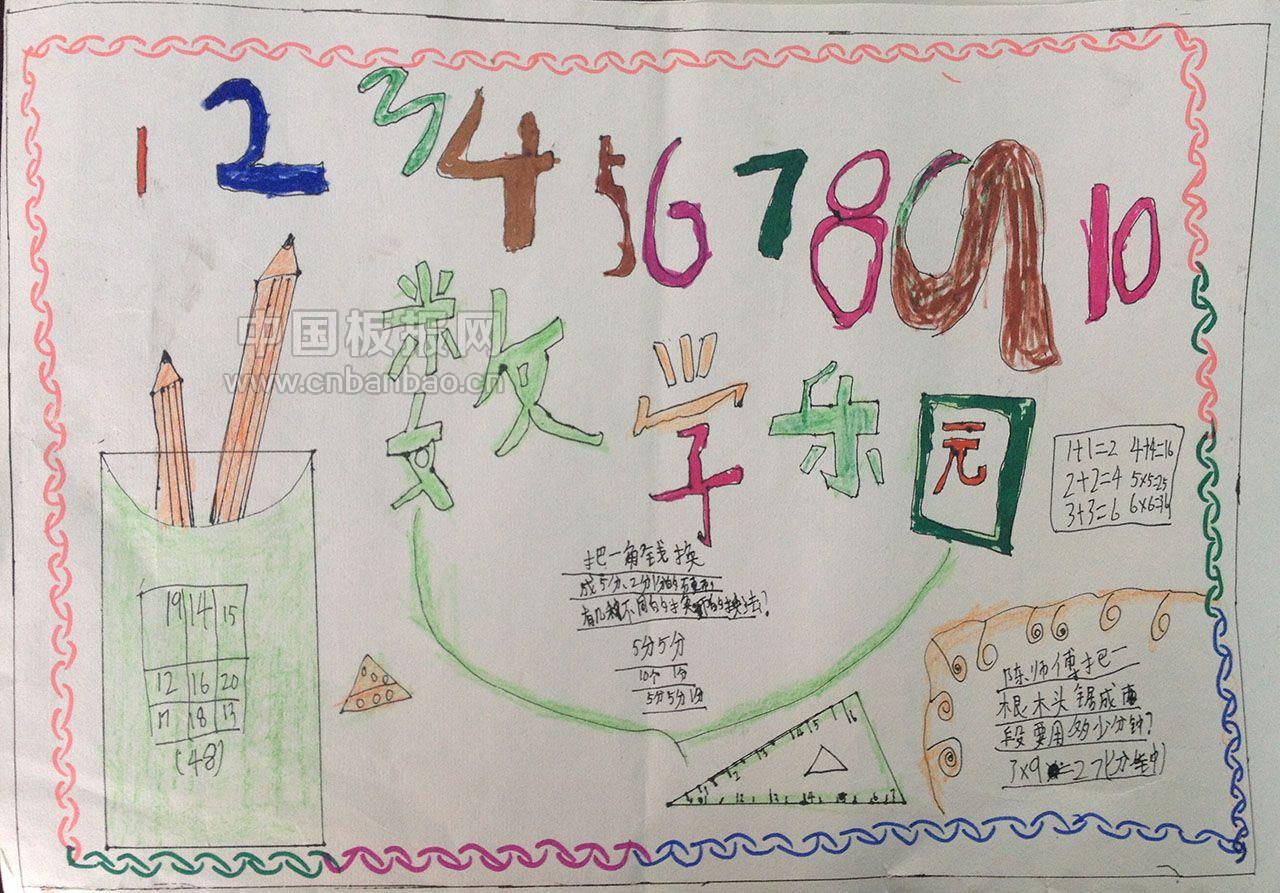 1 2 3 4 5 6 7 8 9 10
中国板报网
www.cnbanbao.cn
数学乐园
1+1=2 4+4=16
2+2=4 5x5=25
3+3=6 6x6=36
把一角钱换
成5分、2分、1分的
有几种不同的换法?
5分5分
10个 1分
5分5分1分
19 14 15
12 16 20
17 18 13
(48)
陈师傅把一
根木头锯成
段要用多少分钟?
3x9=27(分钟)
12 13 14 15 16